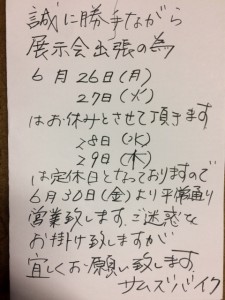 誠に勝手ながら
展示会出張の為
6月26日(月)
27日(火)
はお休みとさせて頂きます
28日(水)
29日(木)
は定休日となっておりますので
6月30日(金)より平常通り
営業致します、ご迷惑を
お掛け致しますが
宜しくお願い致します。
サムズバイク